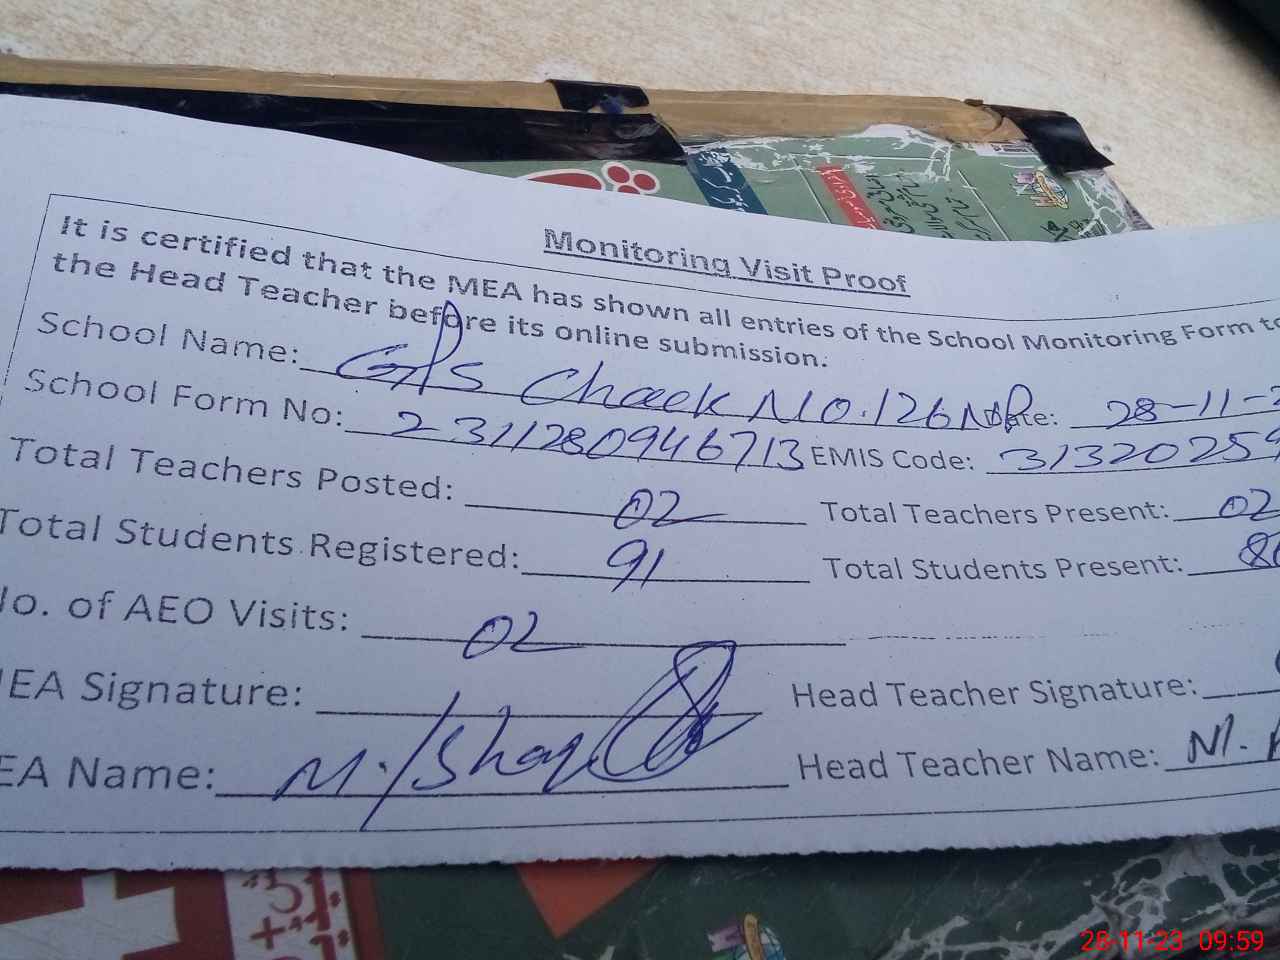 Monitoring Visit Proof
It is certified that the MEA has shown all entries of the School Monitoring Form to
the Head Teacher before its online submission.
School Name: GPS Chack No.126 NP Date: 28-11-2
School Form No: 2311280946713 EMIS Code: 31320259
Total Teachers Posted: 02 Total Teachers Present: 02
Total Students Registered: 91 Total Students Present: 8
No. of AEO Visits: 02
EA Signature: Head Teacher Signature:
EA Name: M. Head Teacher Name: M.
28-11-23 09:59